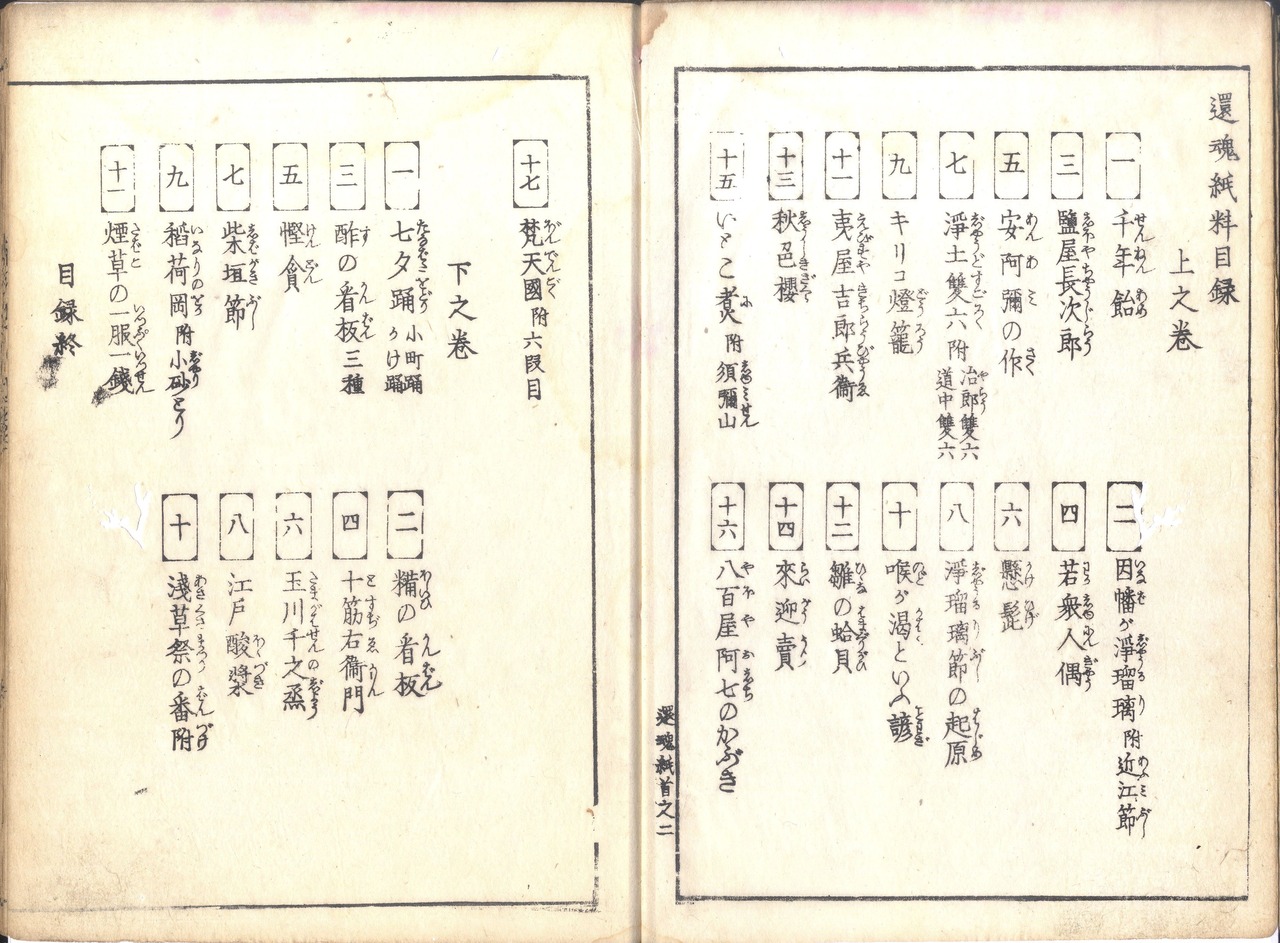 還魂紙料目録
上之卷
一 千年飴
二 因幡が淨瑠璃 附 近江節
三 鹽屋長次郎
四 若衆人偶
五 安阿彌の作
六 懸髭
七 淨土雙六 附 冶郎雙六 道中雙六
八 淨瑠璃節の起原
九 キリコ燈籠
十 喉が渇といふ諺
十一 夷屋吉郎兵衞
十二 雛の蛤貝
十三 秋色櫻
十四 來迎賣
十五 いとこ煮 附 須彌山
十六 八百屋阿七のかぶき
還魂紙首之二
十七 梵天國 附 六段目
下之卷
一 七夕踊 小町踊 かけ踊
二 糒の看板
三 酢の看板 三種
四 十筋右衞門
五 慳貪
六 玉川千之烝
七 柴垣節
八 江戸酸漿
九 稻荷岡 附 小砂とり
十 淺草祭の番附
十一 煙草の一服一錢
目録終